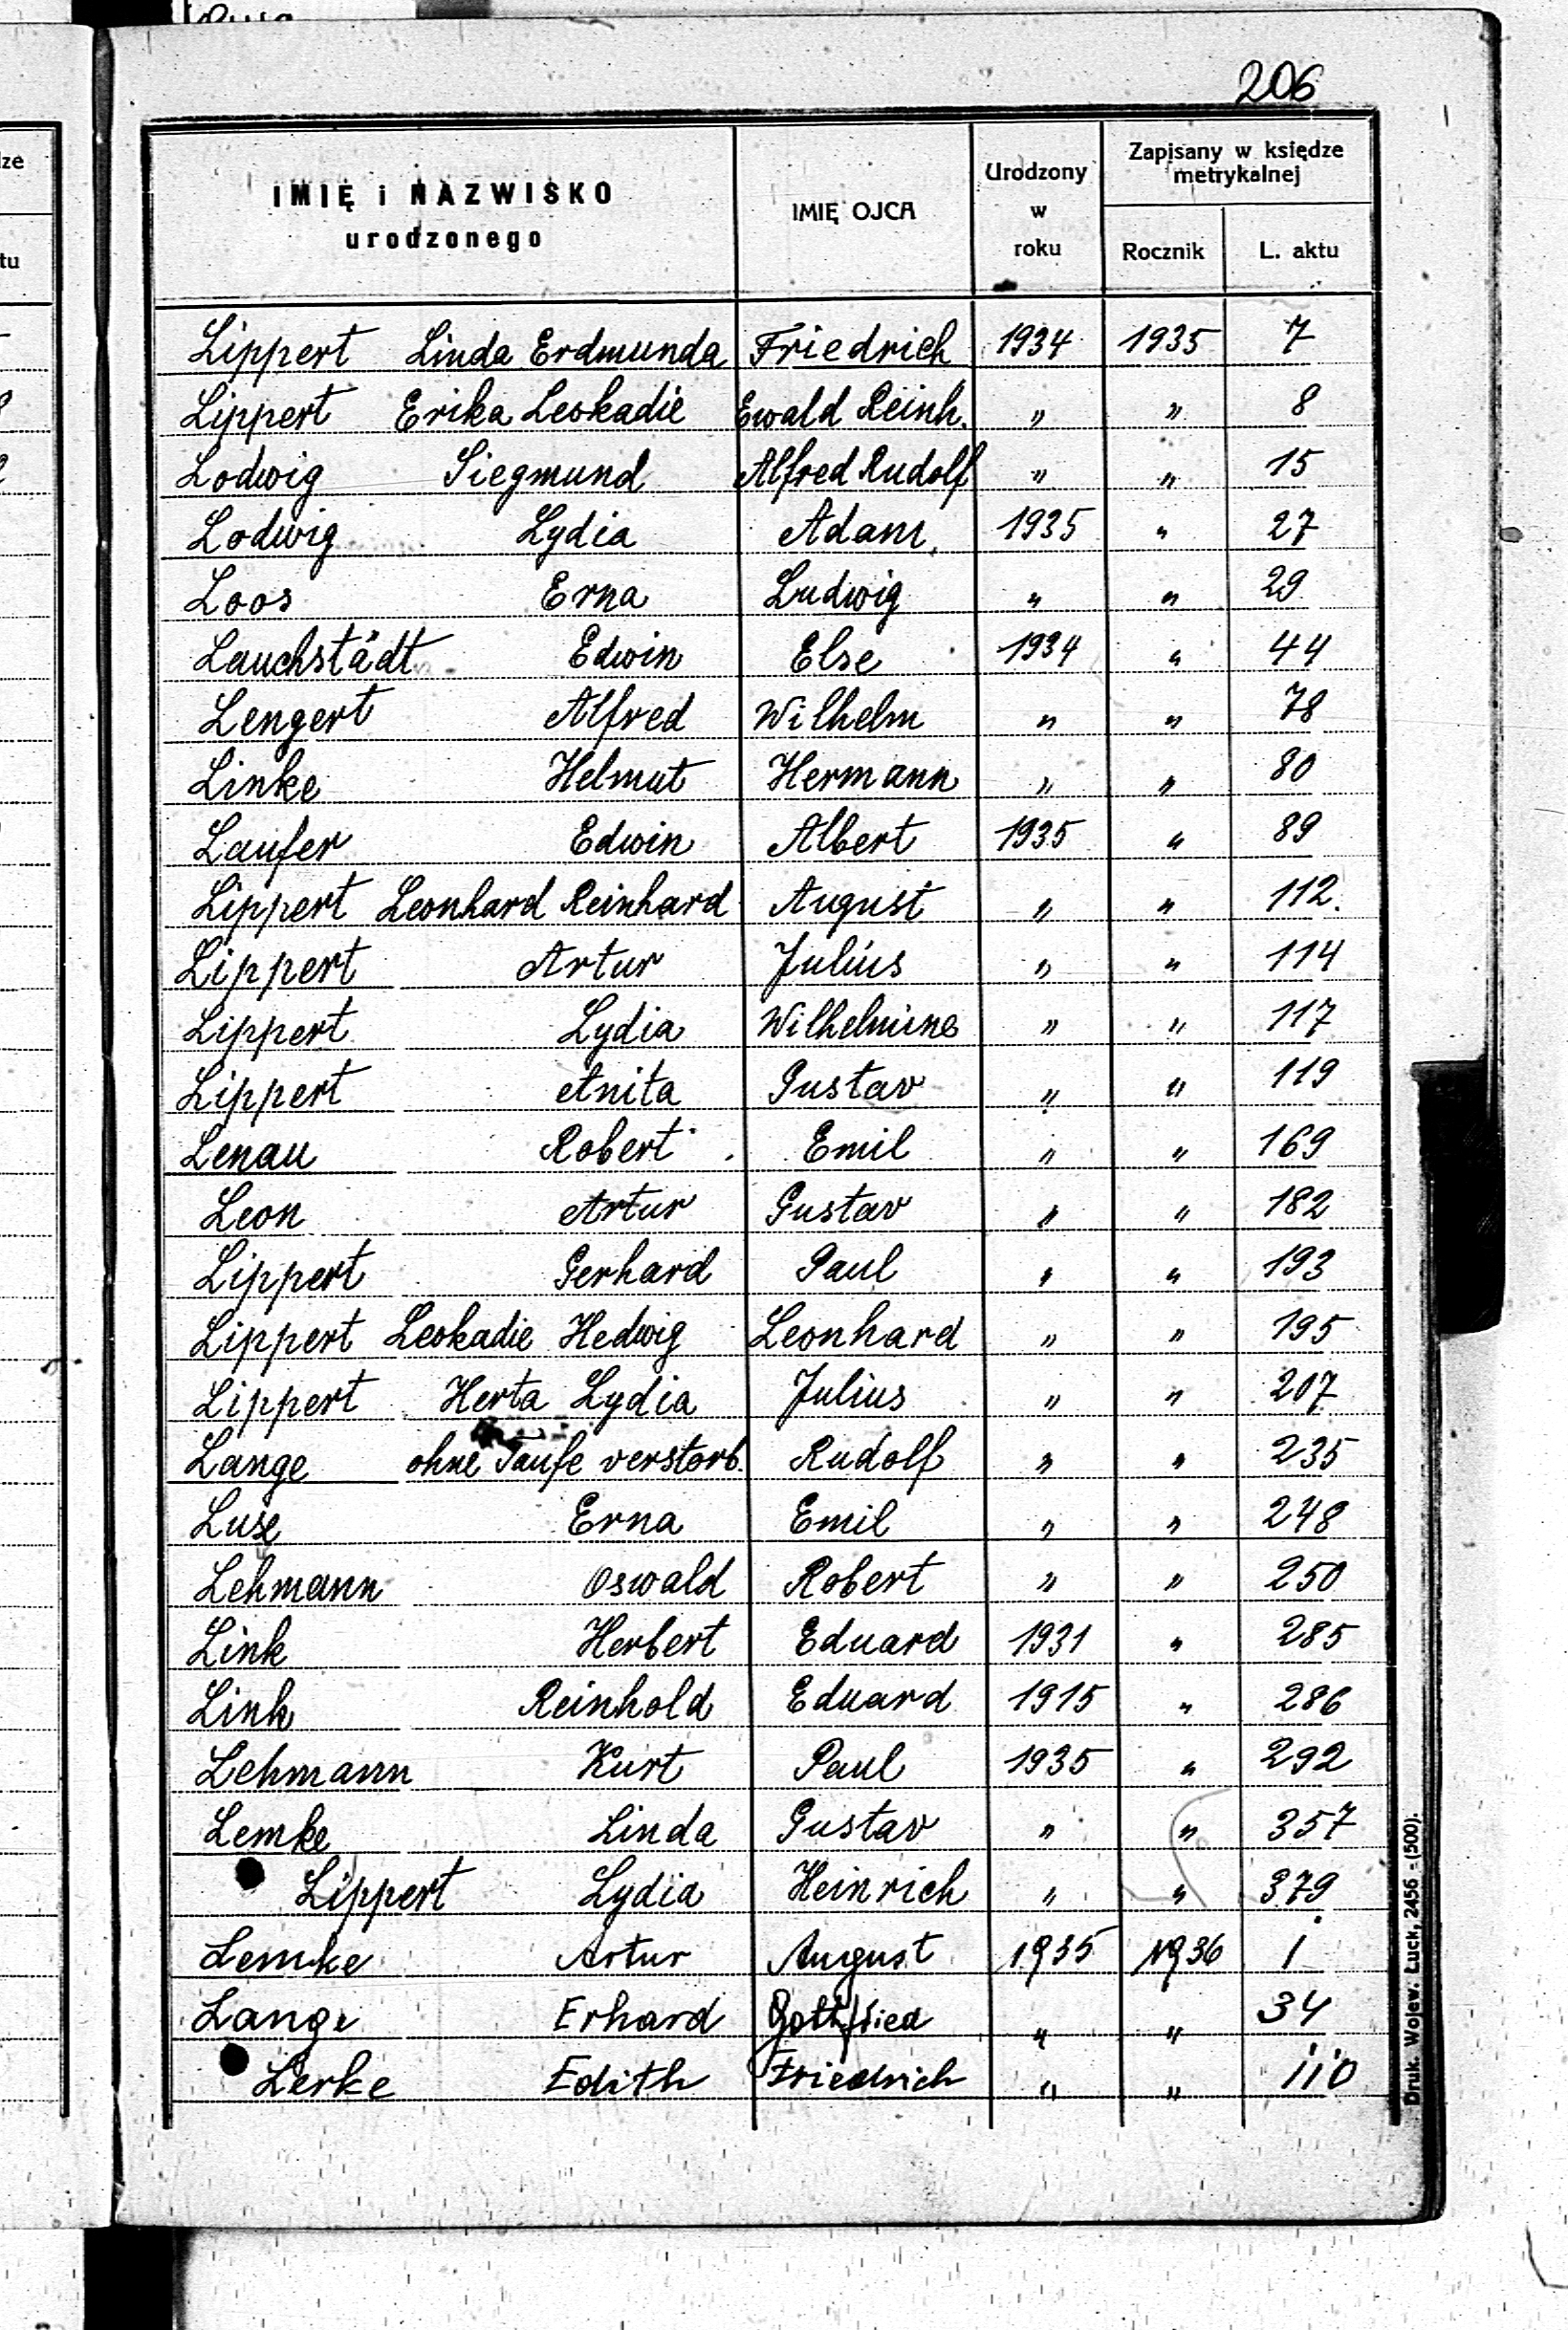 206
IMIĘ i NAZWISKO
urodzonego
IMIĘ OJCA
Urodzony
w
roku
Zapisany w księdze
metrykalnej
Rocznik
L. aktu
Lippert Linda Erdmunda Friedrich 1934 1935 7
Lippert Erika Leokadie Ewald Reinh. " " 8
Lodwig Siegmund Alfred Rudolf " " 15
Lodwig Lydia Adam 1935 " 27
Loos Erna Ludwig " " 29
Lauchstädt Edwin Else 1934 " 44
Lengert Alfred Wilhelm " " 78
Linke Helmut Hermann " " 80
Laufer Edwin Albert 1935 " 89
Lippert Leonhard Reinhard August " " 112.
Lippert Artur Julius " " 114
Lippert Lydia Wilhelmine " " 117
Lippert Anita Gustav " " 119
Lenau Robert Emil " " 169
Leon Artur Gustav " " 182
Lippert Gerhard Paul " " 193
Lippert Leokadie Hedwig Leonhard " " 195
Lippert Herta Lydia Julius " " 207
Lange ohne Taufe verstorb. Rudolf " " 235
Erna Emil " " 248
Lehmann Oswald Robert " " 250
Link Herbert Eduard 1931 " 285
Link Reinhold Eduard 1915 " 286
Lehmann Kurt Paul 1935 " 292
Lemke Linda Gustav " " 357
Lippert Lydia Heinrich " " 379
Lemke Artur August 1935 1936 1
Lange Erhard Gottfried " " 34
Lerke Edith Friedrich " " 110
Druk. Wojew. Łuck, 2456 - (500).
ze
tu